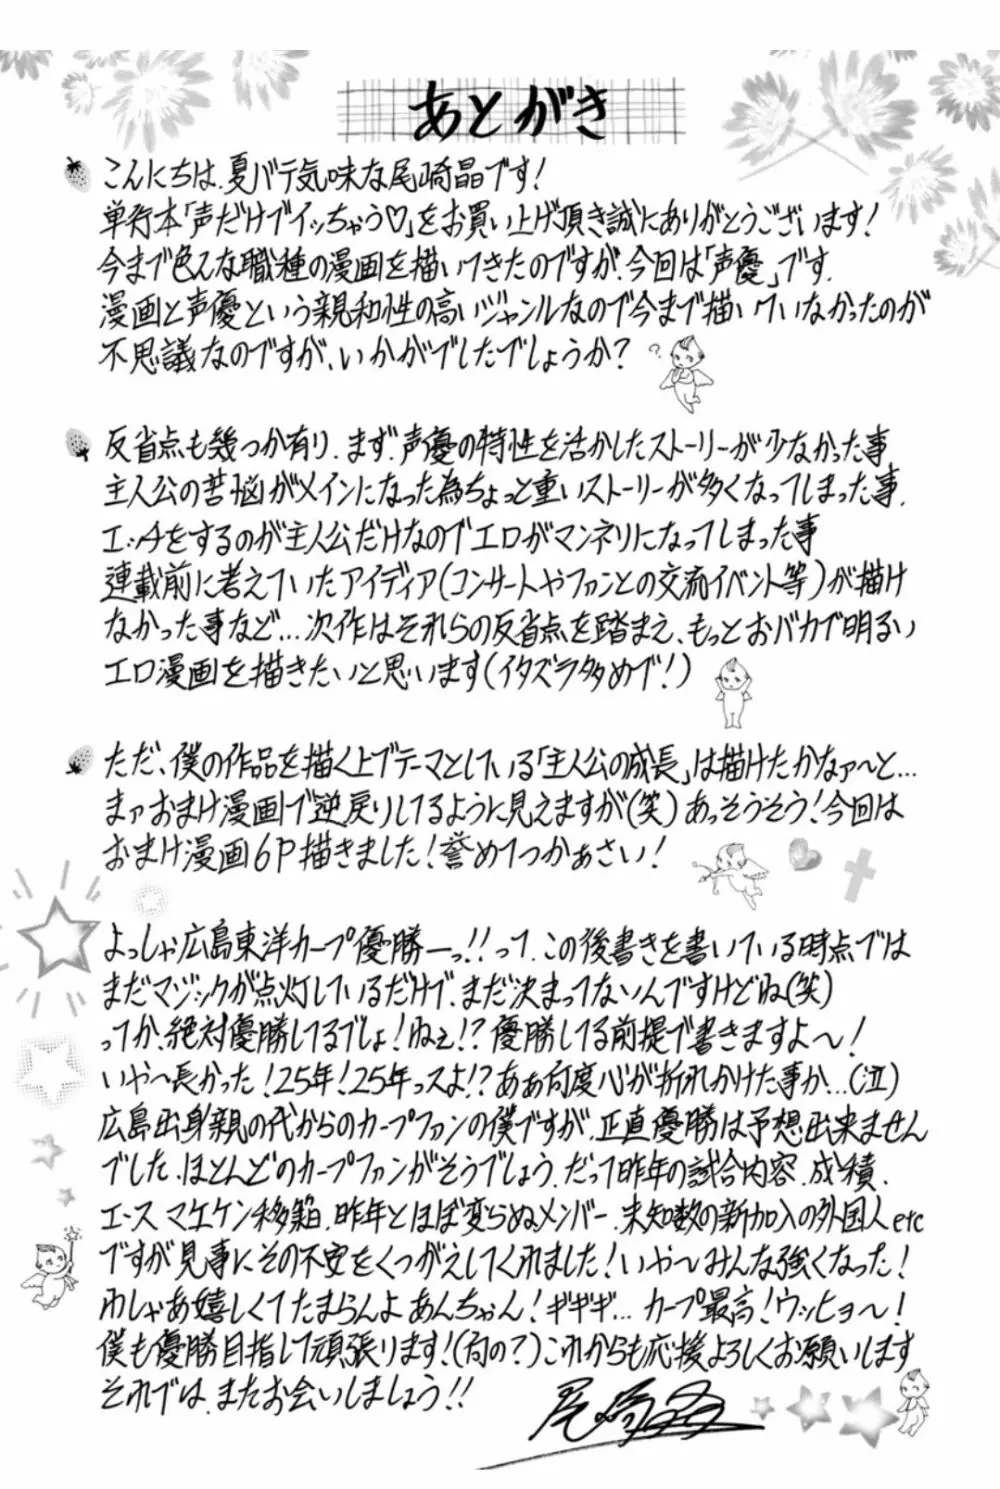 あとがき
こんにちは、夏バテ気味な尾崎晶です!
単行本「声だけでイッちゃう♡」をお買い上げ頂き誠にありがとうございます!
今まで色んな職種の漫画を描いてきたのですが、今回は「声優」です。
漫画と声優という親和性の高いジャンルなので今まで描いていなかったのが
不思議なのですが、いかがでしたでしょうか?
反省点も幾つか有り、まず声優の特性を活かしたストーリーが少なかった事
主人公の苦悩がメインになった為ちょっと重いストーリーが多くなってしまった事、
エッチをするのが主人公だけなのでエロがマンネリになってしまった事
連載前に考えていたアイディア(コンサートやファンとの交流イベント等)が描け
なかった事など…次作はそれらの反省点を踏まえ、もっとおバカで明るい
エロ漫画を描きたいと思います(イタズラ多めで!)
ただ、僕の作品を描く上でテーマとしている「主人公の成長」は描けたかなァ〜と…
まァおまけ漫画で逆戻りしてるように見えますが(笑)あっそうそう!今回は
おまけ漫画6P描きました!誉めてつかぁさい!
よっしゃ広島東洋カープ優勝ーっ!!って、この後書きを書いている時点では
まだマジックが点灯しているだけで、まだ決まってないんですけどね(笑)
ってか、絶対優勝してるでしょ!ねェ!?優勝してる前提で書きますよ〜!
いや〜長かった!25年!25年っスよ!?あぁ何度心が折れかけた事か…(泣)
広島出身親の代からのカープファンの僕ですが、正直優勝は予想出来ません
でした、ほとんどのカープファンがそうでしょう、だって昨年の試合内容、成績、
エース マエケン移籍、昨年とほぼ変らぬメンバー、未知数の新加入の外国人etc
ですが見事にその不安をくつがえしてくれました!いや〜みんな強くなった!
わしゃあ嬉しくてたまらんよ あんちゃん!ギギギ… カープ最高!ウッヒョ〜!
僕も優勝目指して頑張ります!(何の?)これからも応援よろしくお願いします
それでは、またお会いしましょう!!
尾崎晶